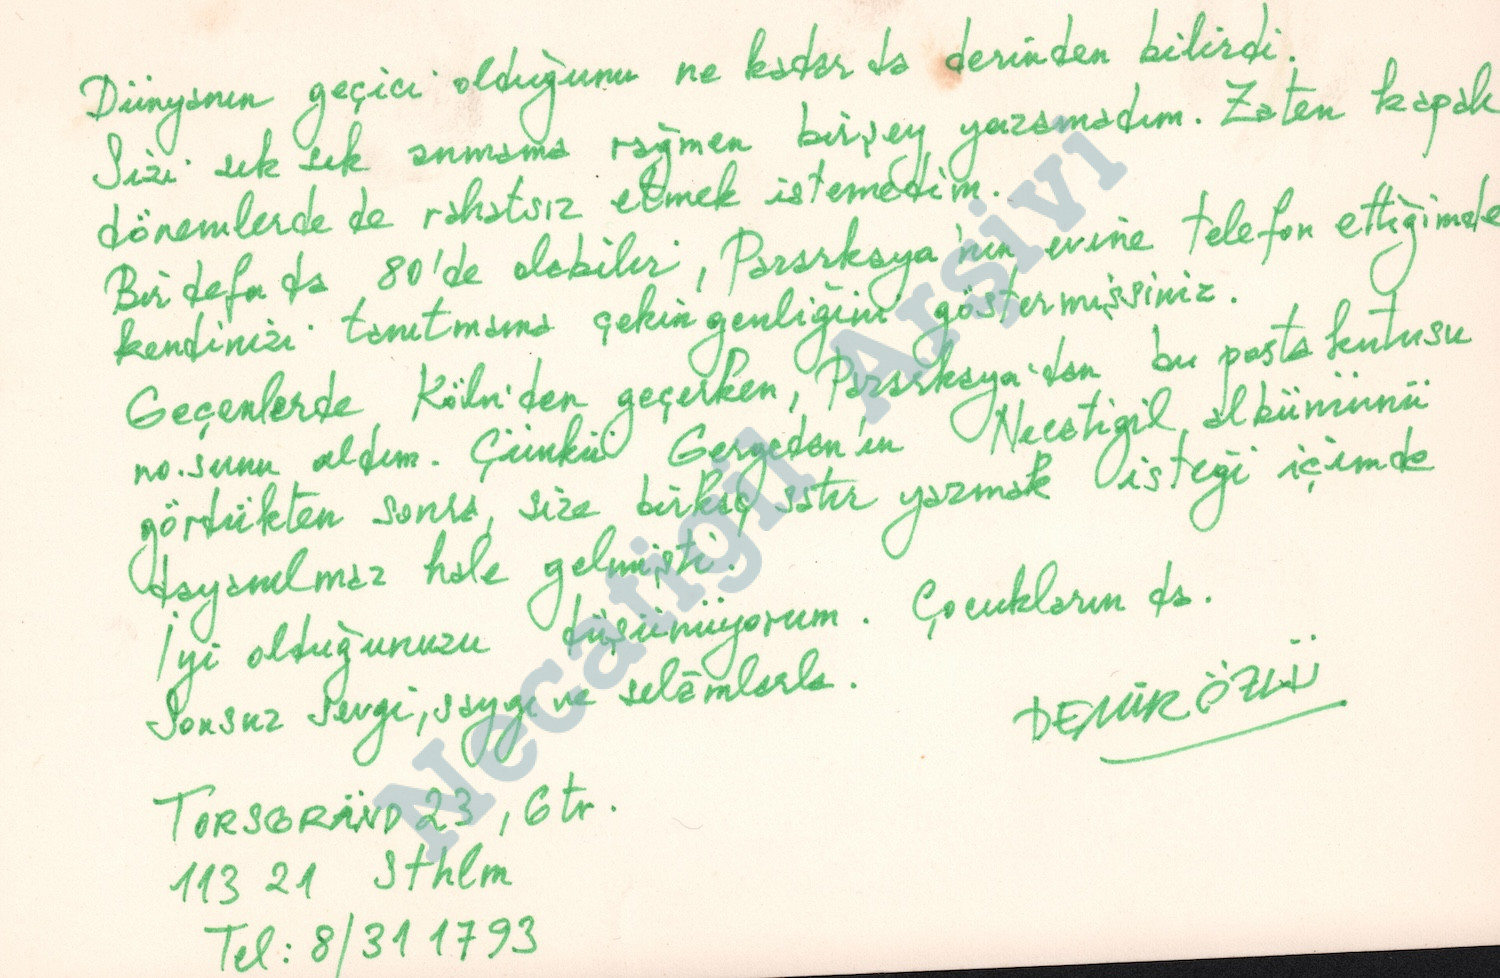 Dünyanın geçici olduğunu ne kadar da derinden bilirdi.
Sizi sık sık anmama rağmen birşey yazamadım. Zaten kapak
dönemlerde de rahatsız etmek istemedim.
Bir defa da 80'de olabilir, Pazarkaya'nın evine telefon ettiğimde
kendinizi tanıtmama çekingenliğini göstermişsiniz.
Geçenlerde Köln'den geçerken, Pazarkaya'dan bu posta kutusu
no.sunu aldım. Çünkü Gergedan'ın Necatigil albümünü
gördükten sonra, size birkaç satır yazmak isteği içimde
dayanılmaz hale gelmişti.
İyi olduğunuzu düşünüyorum. Çocukların da.
Sonsuz sevgi, saygı ve selâmlarla.
DEMİR ÖZLÜ
TORSGRÄND 23, 6 tr.
113 21 Sthlm
Tel: 8/31 1793
Necatigil Arşivi